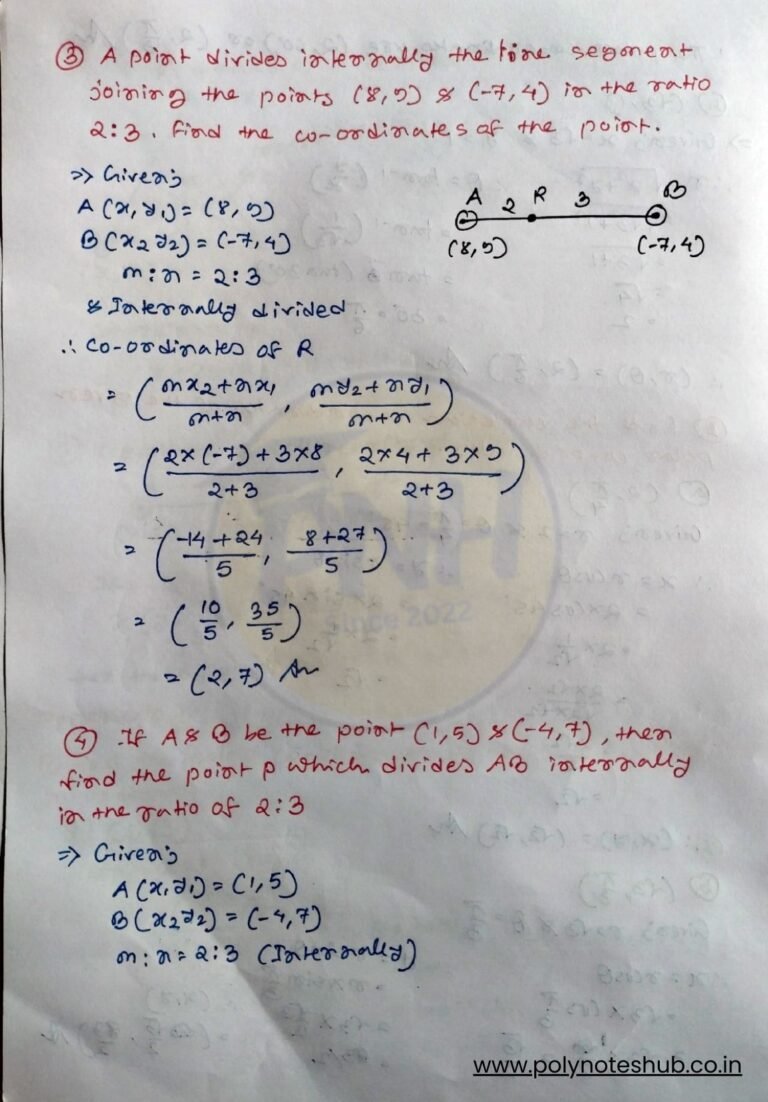 ③ A point divides internally the line segment
joining the points (8,9) & (-7,4) in the ratio
2:3. Find the co-ordinates of the point.
=> Given;
A(x, y₁) = (8,9)
B(x₂ y₂) = (-7,4)
m:n = 2:3
& Internally divided
A 2 R 3 B
(8,9) (-7,4)
∴ Co-ordinates of R
= ( (mx₂+nx₁)/(m+n) , (my₂+ny₁)/(m+n) )
= ( (2×(-7)+3×8)/(2+3) , (2×4+3×9)/(2+3) )
= ( (-14+24)/5 , (8+27)/5 )
= ( 10/5 , 35/5 )
= (2,7) Ans
④ If A & B be the point (1,5) & (-4,7), then
find the point P which divides AB internally
in the ratio of 2:3
=> Given;
A(x, y₁) = (1,5)
B(x₂ y₂) = (-4,7)
m:n = 2:3 (Internally)
PNH
Since 2022
www.polynoteshub.co.in